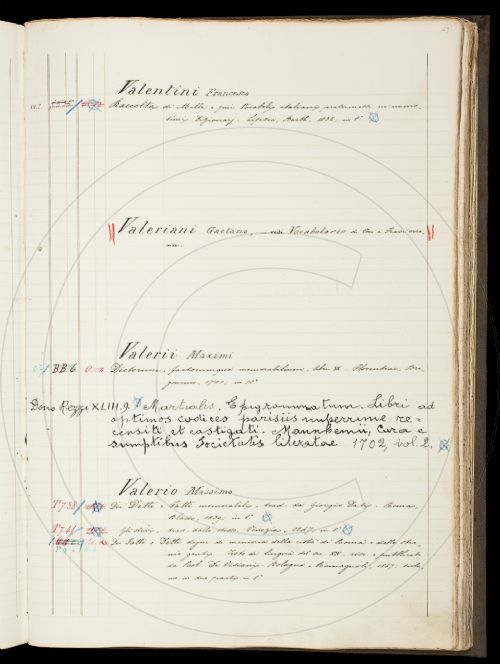 Valentini Francesco
Raccolta di Mille e più Vocaboli italiani
Lipsia, Barth, 1832, in 8°
Valeriani Gaetano, vedi Vocabolario di Voci e Frasi
Valerii Maximi
BB 6 Dictorum, factorumque memorabilium, libri IX. Florentiae,
1701, in 12°
Dono Rezzi XLIII. 9. Martialis. Epigrammatum. Libri ad
optimos codices parisiis nuperrime re-
censiti et castigati. Mannhemii, Cura e
sumptibus Societatis literatae 1702, vol 2.
Valerio Massimo
T 7.33 Dei Detti e Fatti memorabili, trad. da Giorgio Dati. Roma,
in 8°
T 7.41 Gli stessi, trad. dallo stesso. Venezia, in 8°
Dei Fatti e Detti degni di memoria della città di Roma e delle stra-
nie genti. Testo di lingua del sec. XIV. e pubblicato
da Bologna, Romagnoli, 1867.
in due parti in 8°